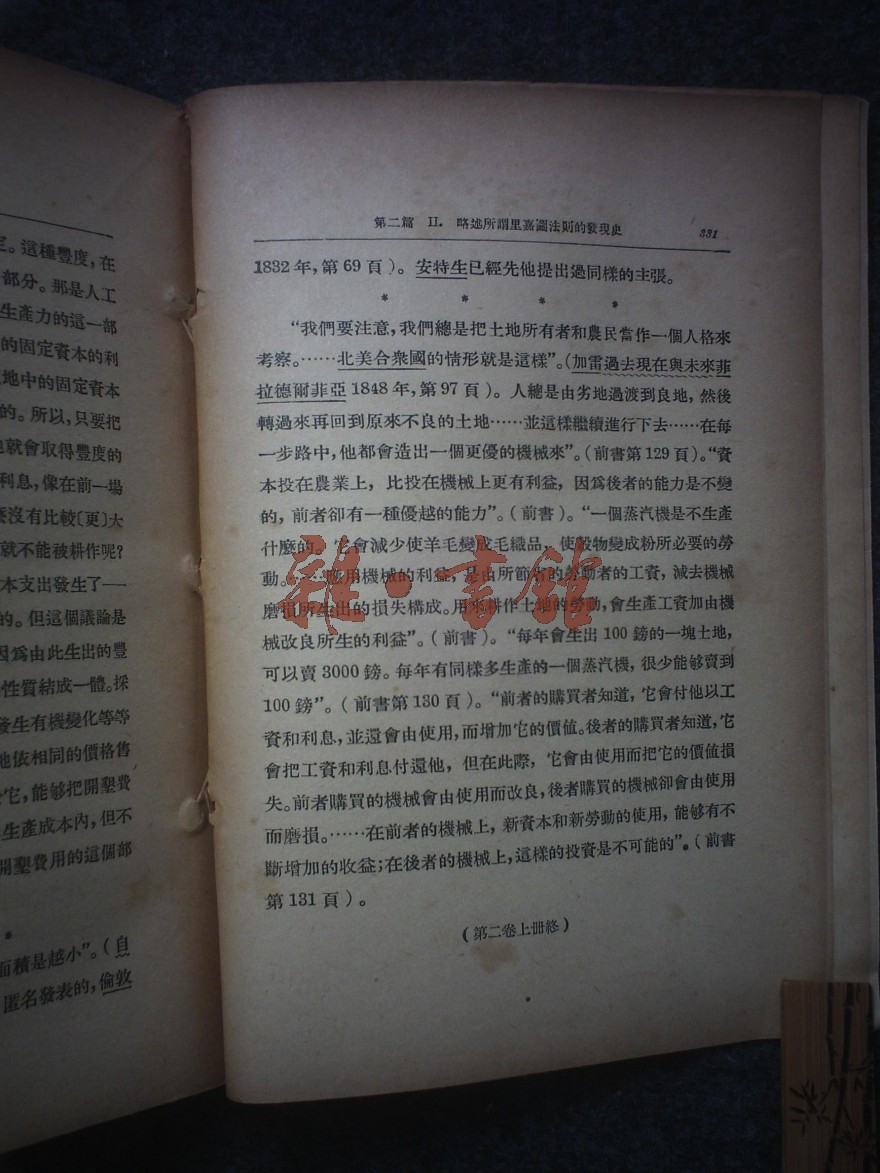 定。這種豐度,在
部分。那是人工
生產力的這一部
的固定資本的利
地中的固定資本
的。所以,只要把
也就會取得豐度的
利息,像在前一場
麼沒有比較〔更〕大
就不能被耕作呢?
本支出發生了——
的。但這個議論是
因爲由此生出的豐
性質結成一體。採
發生有機變化等等
地依相同的價格售
它,能够把開墾費
生產成本內,但不
開墾費用的這個部
*
面積是越小”。(自
匿名發表的,倫敦
第二篇 II. 略述所謂里嘉圖法則的發現史 331
1832年,第69頁)。安特生已經先他提出過同樣的主張。
* * * *
“我們要注意,我們總是把土地所有者和農民當作一個人格來
考察。……北美合衆國的情形就是這樣”。(加雷過去現在與未來菲
拉德爾菲亞1848年,第97頁)。人總是由劣地過渡到良地,然後
轉過來再回到原來不良的土地……並這樣繼續進行下去……在每
一步路中,他都會造出一個更優的機械來”。(前書第129頁)。“資
本投在農業上,比投在機械上更有利益,因爲後者的能力是不變
的,前者卻有一種優越的能力”。(前書)。“一個蒸汽機是不生產
什麼的。它會減少使羊毛變成毛織品,使穀物變成粉所必要的勞
動。……應用機械的利益,是由所節省的勞動者的工資,減去機械
磨損所生出的損失構成。用來耕作土地的勞動,會生產工資加由機
械改良所生的利益”。(前書)。“每年會生出100鎊的一塊土地,
可以賣3000鎊。每年有同樣多生產的一個蒸汽機,很少能够賣到
100鎊”。(前書第130頁)。“前者的購買者知道,它會付他以工
資和利息,並還會由使用,而增加它的價值。後者的購買者知道,它
會把工資和利息付還他,但在此際,它會由使用而把它的價値損
失。前者購買的機械會由使用而改良,後者購買的機械卻會由使用
而磨損。……在前者的機械上,新資本和新勞動的使用,能够有不
斷增加的收益;在後者的機械上,這樣的投資是不可能的”。(前書
第131頁)。
(第二卷上册終)
雜·書館